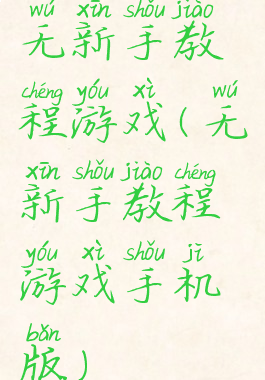 wú xīn shǒu jiào
无新手教
chéng yóu xì wú
程游戏(无
xīn shǒu jiào chéng
新手教程
yóu xì shǒu jī
游戏手机
bǎn
版)